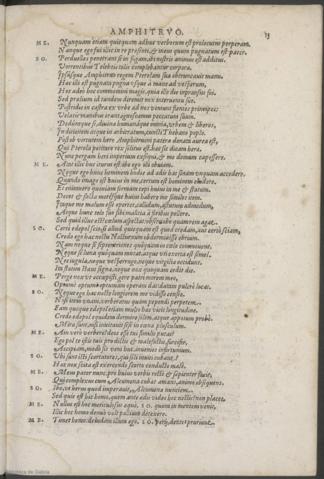 AMPHITRVO. 13
ME. Nunquam etiam quicquam adhuc verborum est prolocutus perperam.
Nanque ego fui illic in re presenti, & meus quum pugnatum est pater.
SO. Perduelles penetrant se in fugam, ibi nostris animus est additus.
Vortentibus Telebois telis complebantur corpora.
Ipsusque Amphitruo regem Pterelam sua obtruncavit manu.
Hæc illi est pugnata pugna usque a mane ad vesperum,
Hoc adeo hoc commemini magis, quia illo die inpransus fui.
Sed prælium id tandem diremit nox interventu suo.
Postridie in castra ex urbe ad nos veniunt flentes principes:
Velatis manibus orant, ignoscamus peccatum suum.
Deduntque se, divina humanaque omnia, urbem & liberos,
In ditionem atque in arbitratum, cuncti Thebano poplo.
Post ob virtutem hero Amphitruoni patera donata aurea est,
Qui Pterela potitare rex solitus est. hæc sic dicam heræ.
Nunc pergam heri imperium exsequi, & me domum capessere.
ME. Atat illic huc iturus est. ibo ego illi obviam.
Neque ego hunc hominem hodie ad ædis has sinam unquam accedere.
Quando imago est huius in me, certum est hominem eludere.
Et enimvero quoniam formam cepi huius in me & statum,
Decet & facta moresque huius habere me similes item.
Itaque me malum esse oportet, callidum, astutum admodum,
Atque hunc telo suo sibi malitia a foribus pellere.
Sed quid illuc est? cælum aspectat. observabo quam rem agat.
SO. Certe edepol scio, si aliud quicquam est quod credam, aut certo sciam,
Credo ego hac noctu Nocturnum obdormisse ebrium.
Nam neque se septentriones quoquam in cælo commovent,
Neque se luna quoquam mutat, atque uti exorta est semel.
Nec iugulæ, neque vesperugo, neque vergiliæ occidunt.
Ita statim stant signa, neque nox quoquam cedit die.
ME. Perge nox ut occepisti, gere patri morem meo,
Optume optumo optumam operam das: datam pulcre locas.
SO. Neque ego hac nocte longiorem me vidisse censeo.
Nisi item unam, verberatus quam pependi perpetem.
Eam quoque edepol etiam multo hæc vicit longitudine.
Credo edepol equidem dormire solem, atque appotum probe.
Mira sunt, nisi invitavit sese in cæna plusculum.
ME. Ain vero verbero? deos esse tui similis putas?
Ego pol te istis tuis pro dictis & malefactis, furcifer,
Accipiam, modo sis veni huc. invenies infortunium.
SO. Ubi sunt isti scortatores, qui soli inviti cubant?
Hæc nox scita est exercendo scorto conducto male.
ME. Meus pater nunc pro huius verbis recte & sapienter facit,
Qui complexus cum Alcumena cubat amans, animo obsequens.
SO. Ibo, ut herus quod imperavit, Alcumenæ nunciem.
Sed quis est hic homo, quem ante ædis video hoc noctis? non placet.
ME. Nullus est hoc meticulosus æque. SO. quom in mentem venit,
Illic hoc homo denuo volt pallium detexere.
ME. Timet homo: deludam illum ego. SO. perij, dentes pruriunt.